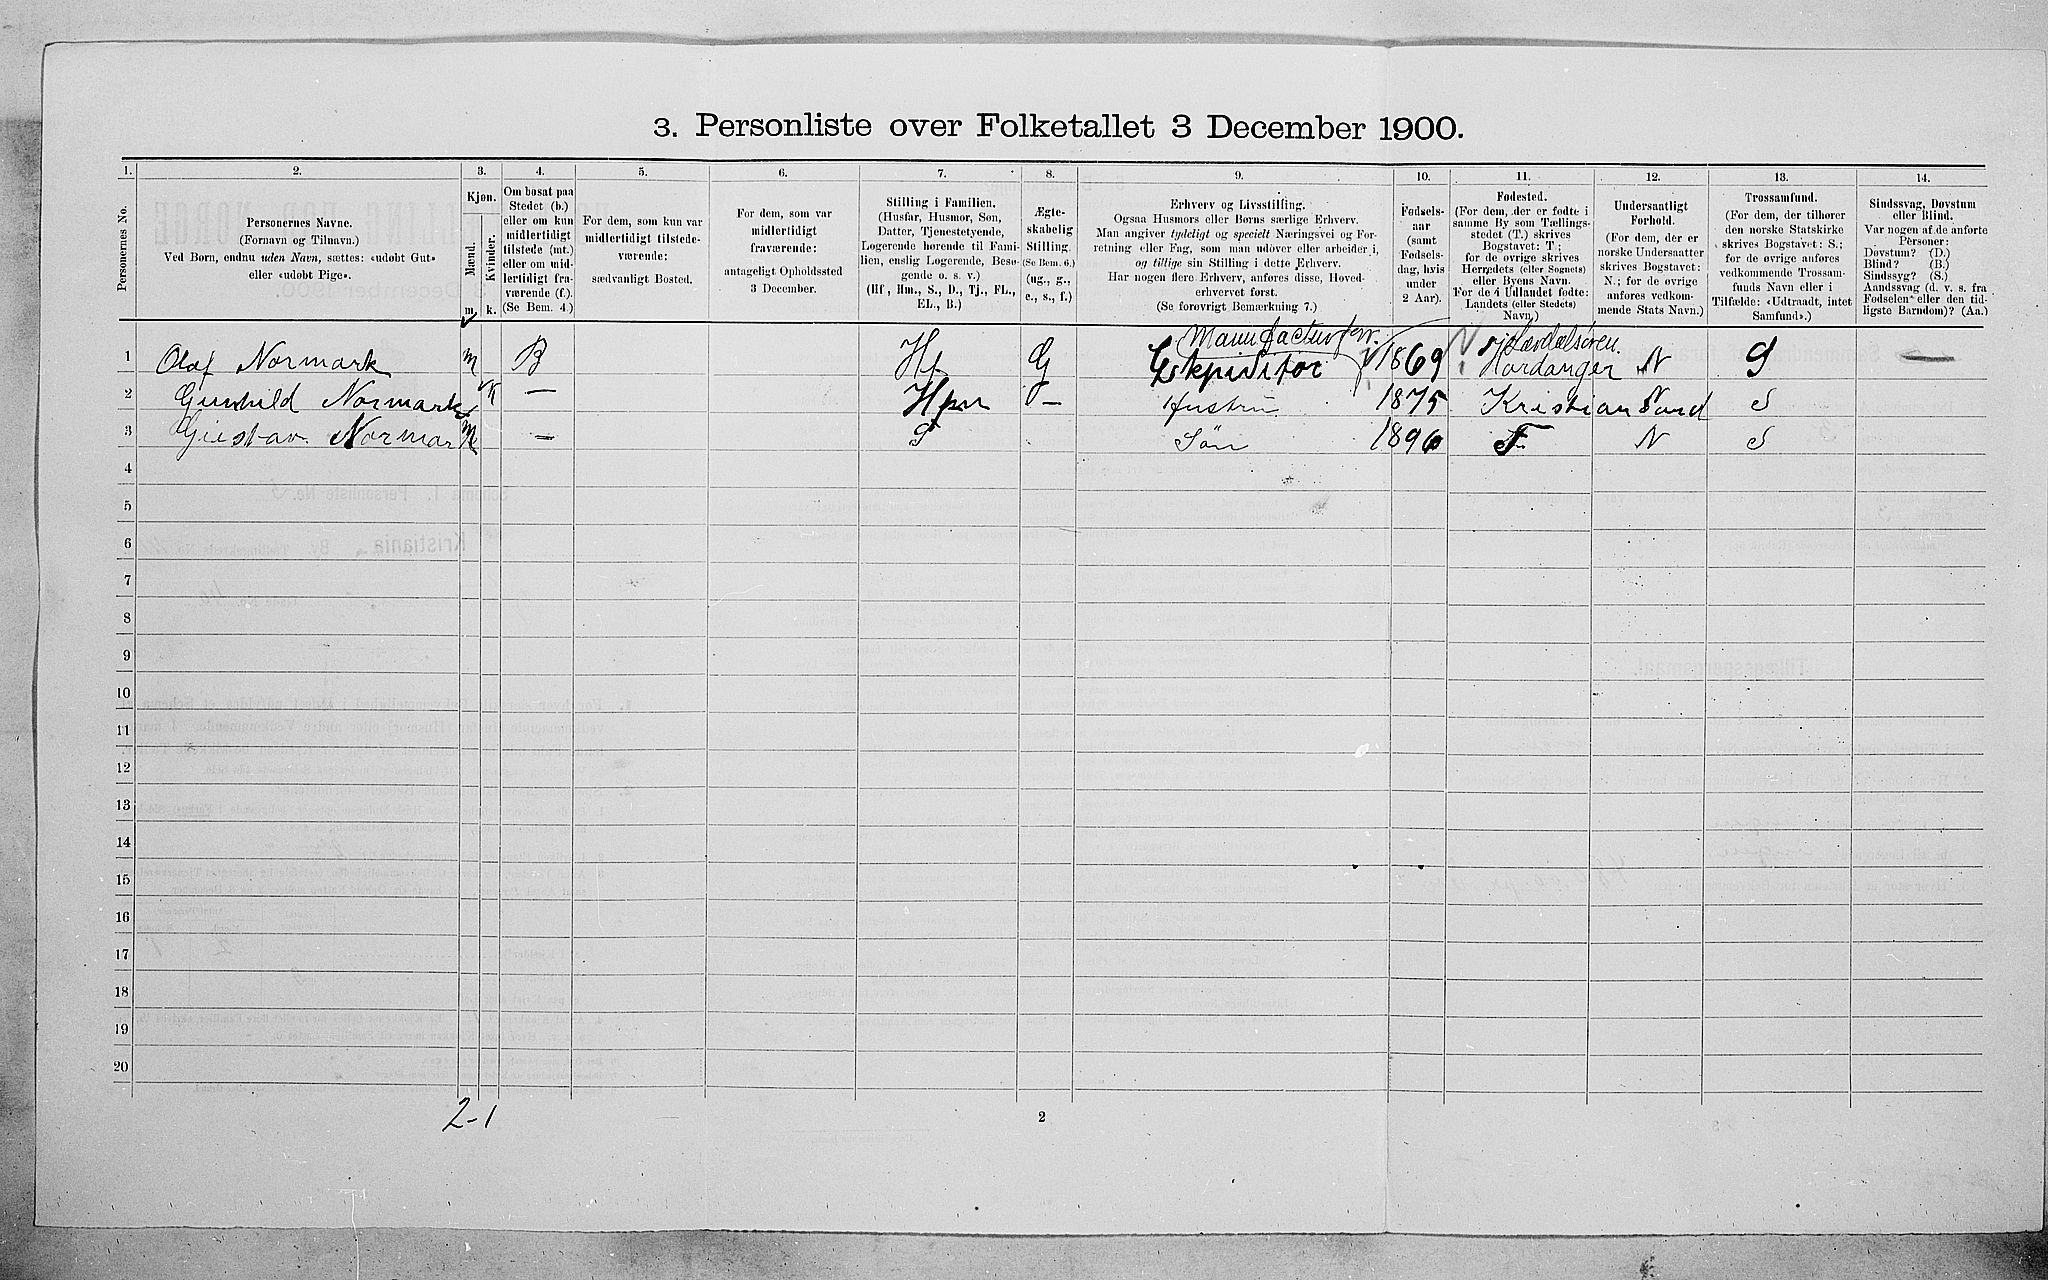 3. Personliste over Folketallet 3 December 1900.
1. 2. 3. 4. 5. 6. 7. 8. 9. 10. 11. 12. 13. 14.
Personernes No.
Personernes Navne.
(Fornavn og Tilnavn.)
Ved Børn, endnu uden Navn, sættes: «udøbt Gut»
eller «udøbt Pige».
Kjøn.
Mænd.
Kvinder.
m. k.
Om bosat paa
Stedet (b.)
eller om kun
midlertidigt
tilstede (mt.)
eller om mid-
lertidigt fra-
værende (f.).
(Se Bem. 4.)
For dem, som kun var
midlertidigt tilstede-
værende:
sædvanligt Bosted.
For dem, som var
midlertidigt
fraværende:
antageligt Opholdssted
3 December.
Stilling i Familien.
(Husfar, Husmor, Søn,
Datter, Tjenestetyende,
Logerende hørende til Fami-
lien, enslig Logerende, Besø-
gende o. s. v.)
(Hf, Hm., S., D., Tj., FL.,
EL., B.)
Ægte-
skabelig
Stilling.
(Se Bem. 6.)
(ug., g.,
e., s., f.)
Erhverv og Livsstilling.
Ogsaa Husmors eller Børns særlige Erhverv.
Man angiver tydeligt og specielt Næringsvei og For-
retning eller Fag, som man udøver eller arbeider i,
og tillige sin Stilling i dette Erhverv.
Har nogen flere Erhverv, anføres disse, Hoved-
erhvervet først.
(Se forøvrigt Bemærkning 7.)
Fødsels-
aar
(samt
Fødsels-
dag, hvis
under
2 Aar).
Fødested.
(For dem, der er fødte i
samme By som Tællings-
stedet (T.) skrives
Bogstavet: T;
for de øvrige skrives
Herredets (eller Sognets)
eller Byens Navn.
For de i Udlandet fødte:
Landets (eller Stedets)
Navn.)
Undersaatligt
Forhold.
(For dem, der er
norske Undersaatter
skrives Bogstavet:
N.; for de øvrige
anføres vedkom-
mende Stats Navn.)
Trossamfund.
(For dem, der tilhører
den norske Statskirke
skrives Bogstavet: S.;
for de øvrige anføres
vedkommende Trossam-
funds Navn eller i
Tilfælde: «Udtraadt, intet
Samfund».)
Sindssvag, Døvstum
eller Blind.
Var nogen af de anførte
Personer:
Døvstum? (D.)
Blind? (B.)
Sindssyg? (S.)
Aandssvag (d. v. s. fra
Fødselen eller den tid-
ligste Barndom)? (Aa.)
1 Olaf Normark M B Hf G Ekspiditør 1869 Lærdalsøren. Hardanger N S —
2 Gunhild Normark K — Hm — Hustru 1875 Kristiansand S
3 Gustav Normark M — S Søn 1896 T N S
4
5
6
7
8
9
10
11
12
13
14
15
16
17
18
19
20
2-1
2